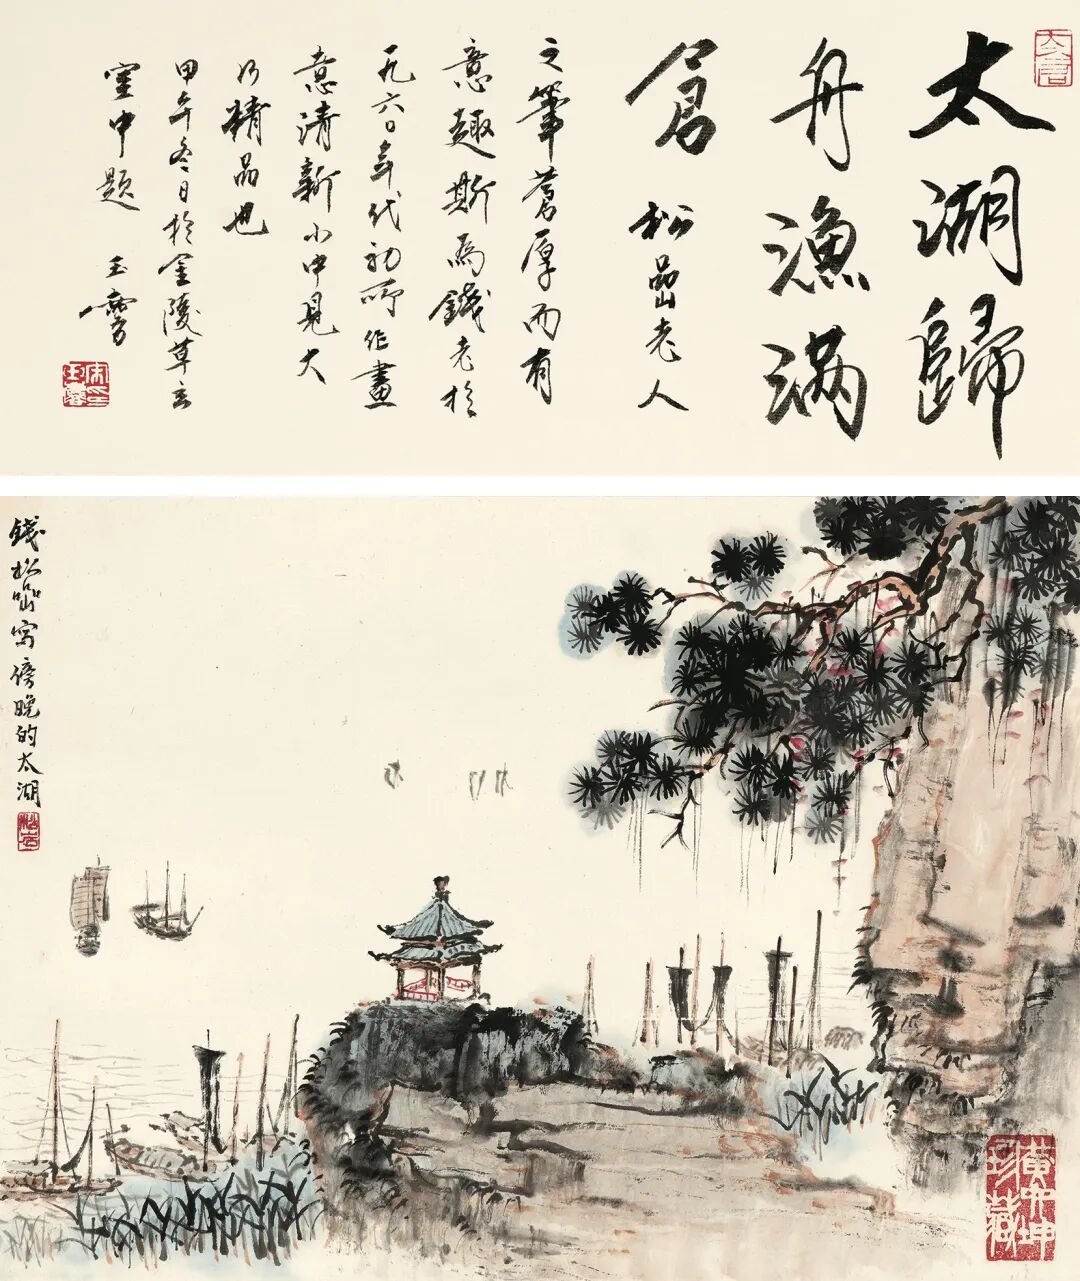 太湖歸
舟漁滿
倉 松喦老人
之筆蒼厚而有
意趣斯為錢老於
一九六〇年代初所作畫
意清新小中見大
乃精品也
甲午冬日於金陵草玄
室中題 玉麟
錢松喦寫傍晚的太湖
珍藏